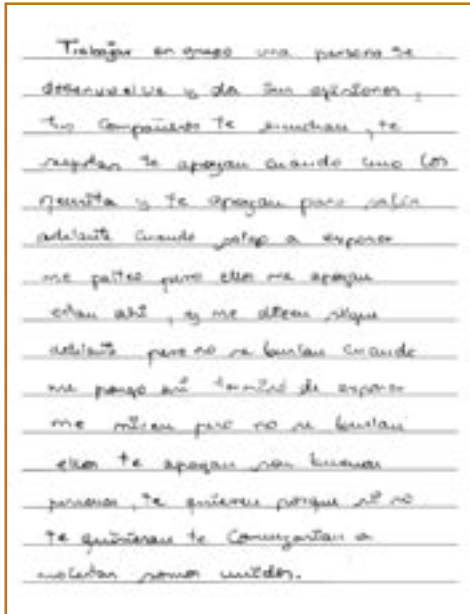 Trabajar en grupo una persona se
desenvuelve y da sus opiniones,
tus compañeros te escuchan, te
respetan te apoyan cuando uno los
necesita y te apoyan para salir
adelante cuando salgo a exponer
me pero ellos me apoyan
estan ahí, y me dicen sigue
adelante pero no se burlan cuando
me pongo así termino de exponer
me miran pero no se burlan
ellos te apoyan son buenas
personas, te quieren porque si no
te quisieran te comenzarían a
molestar somos unidos.